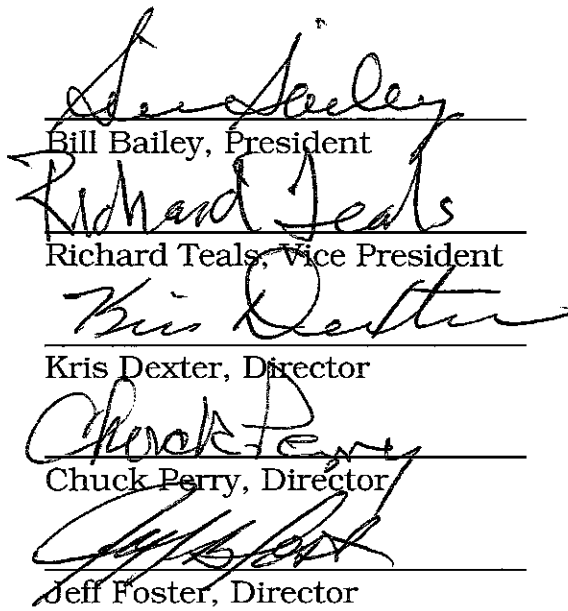 Bill Bailey
Bill Bailey, President
Richard Teals
Richard Teals, Vice President
Kris Dexter
Kris Dexter, Director
Chuck Perry
Chuck Perry, Director
Jeff Foster, Director